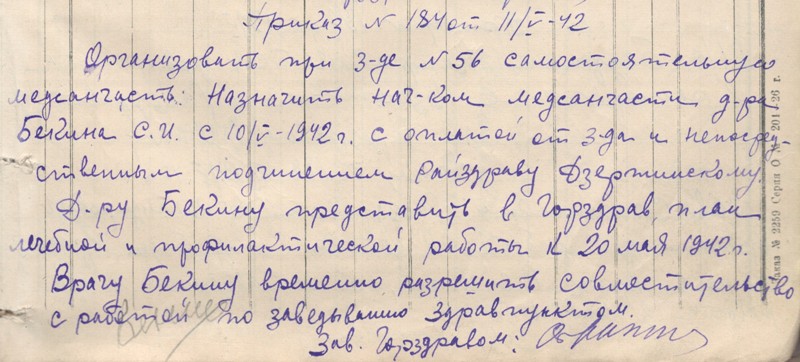 Приказ № 184 от 11/V-42
Организовать при з-де № 56 самостоятельную
медсанчасть: Назначить нач-ком медсанчасти д-ра
Бекина С.И. с 10/V-1942 г. с оплатой от з-да и непосред
ственным подчинением Райздраву Дзержинскому.
Д-ру Бекину представить в Горздрав план
лечебной и профилактической работы к 20 мая 1942 г.
Врачу Бекину временно разрешить совместительство
с работой по заведыванию Здравпунктом.
Зав. Горздравом:
Заказ № 2259 Серия О № 201/26 г.